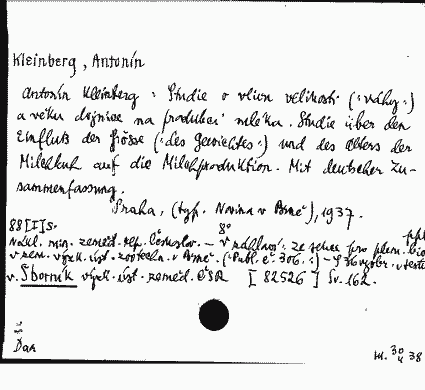 Kleinberg, Antonín
Antonín Kleinberg : Studie o vlivu velikosti (:váhy:)
a věku dojnice na produkci mléka. Studie über den
Einfluß der Grösse (:des Gewichtes:) und des Alters der
Milchkuh auf die Milchproduktion. Mit deutscher Zu-
sammenfassung.
Praha, (typ. Novina v Brně), 1937.
88[I]s. 8°
Nákl. min. zeměd. rep. Českoslov. –
v zem. výzk. úst. zootechn. v Brně. (:Publ. č. 306.:) – S 36 vyobr. v textu
v. Sborník výzk. úst. zeměd. ČSR [82526] Sv. 162.
Daa
kl. 30/4 38